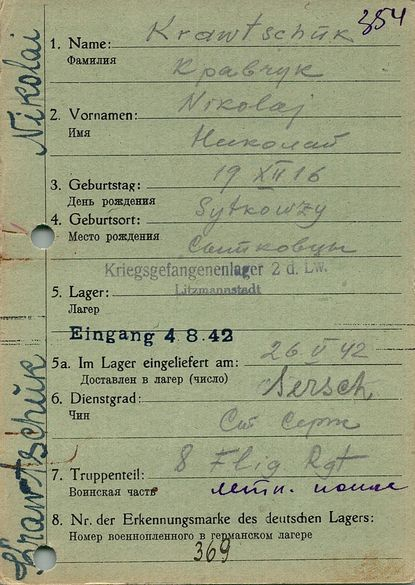 354
1. Name: Krawtschük
Фамилия Кравчук
2. Vornamen: Nikolaj
Имя Николай
3. Geburtstag: 19 XII 16
День рождения
4. Geburtsort: Sytkowzy
Место рождения Сытковцы
Kriegsgefangenenlager 2 d. Lw.
Litzmannstadt
5. Lager:
Лагерь
Eingang 4.8.42
5a. Im Lager eingeliefert am: 26 V 42
Доставлен в лагерь (число)
6. Dienstgrad: Sersch.
Чин Серж
7. Truppenteil: 8 Flig Rgt
Воинская часть
8. Nr. der Erkennungsmarke des deutschen Lagers:
Номер военнопленного в германском лагере
369
Krawtschük Nikolai